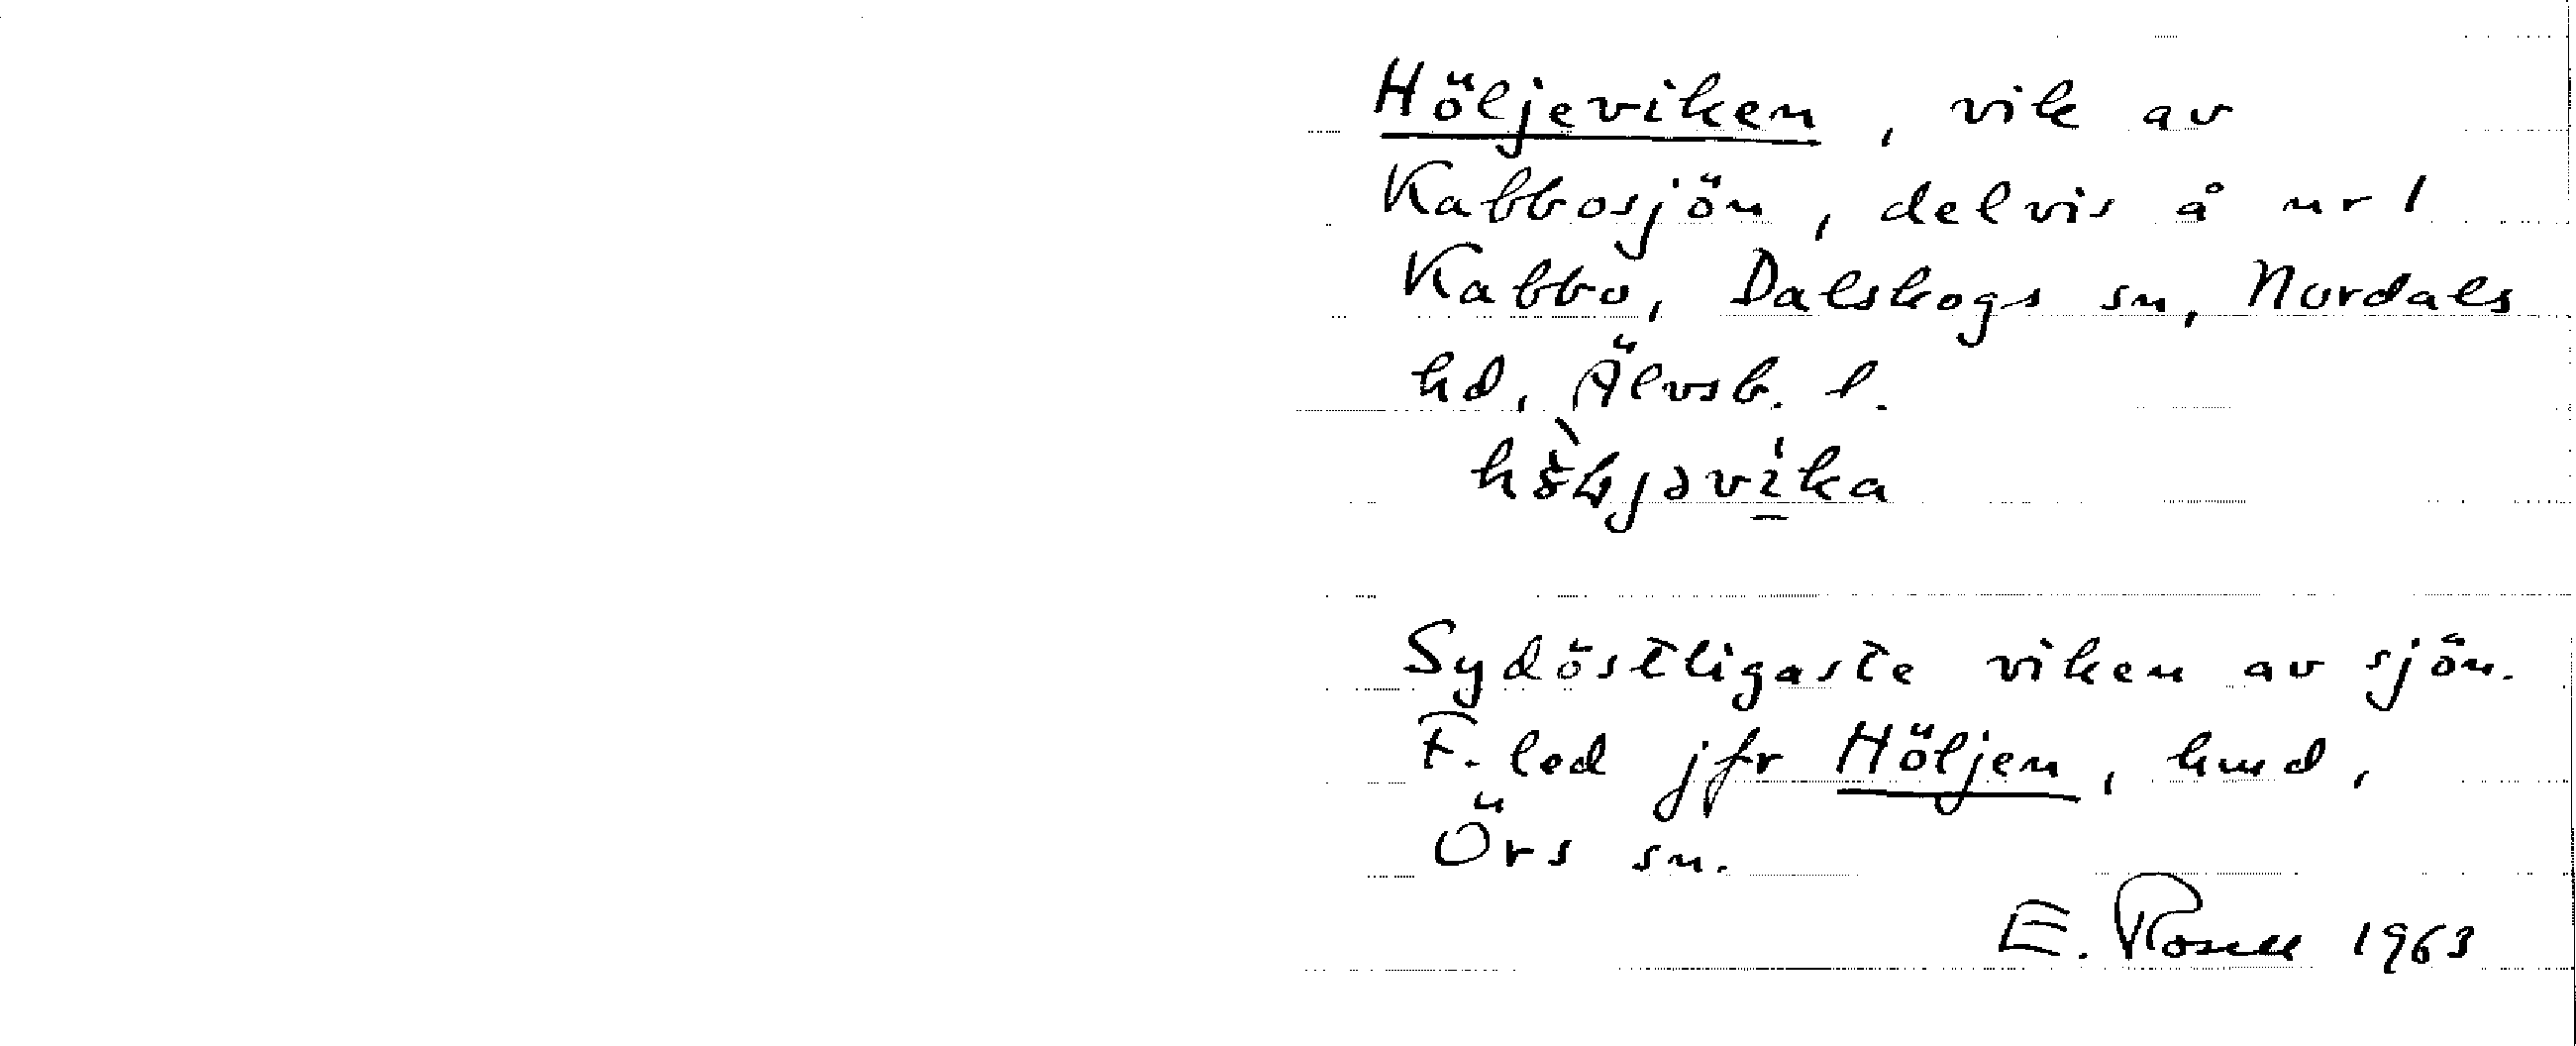 Höljeviken, vik av
Kabbosjön, delvis å nr 1
Kabbo, Dalskogs sn, Nordals
hd, Älvsb. l.
Sydöstligaste viken av sjön.
F. led jfr Höljen, hmd,
Örs sn.
E. Rosell 1963